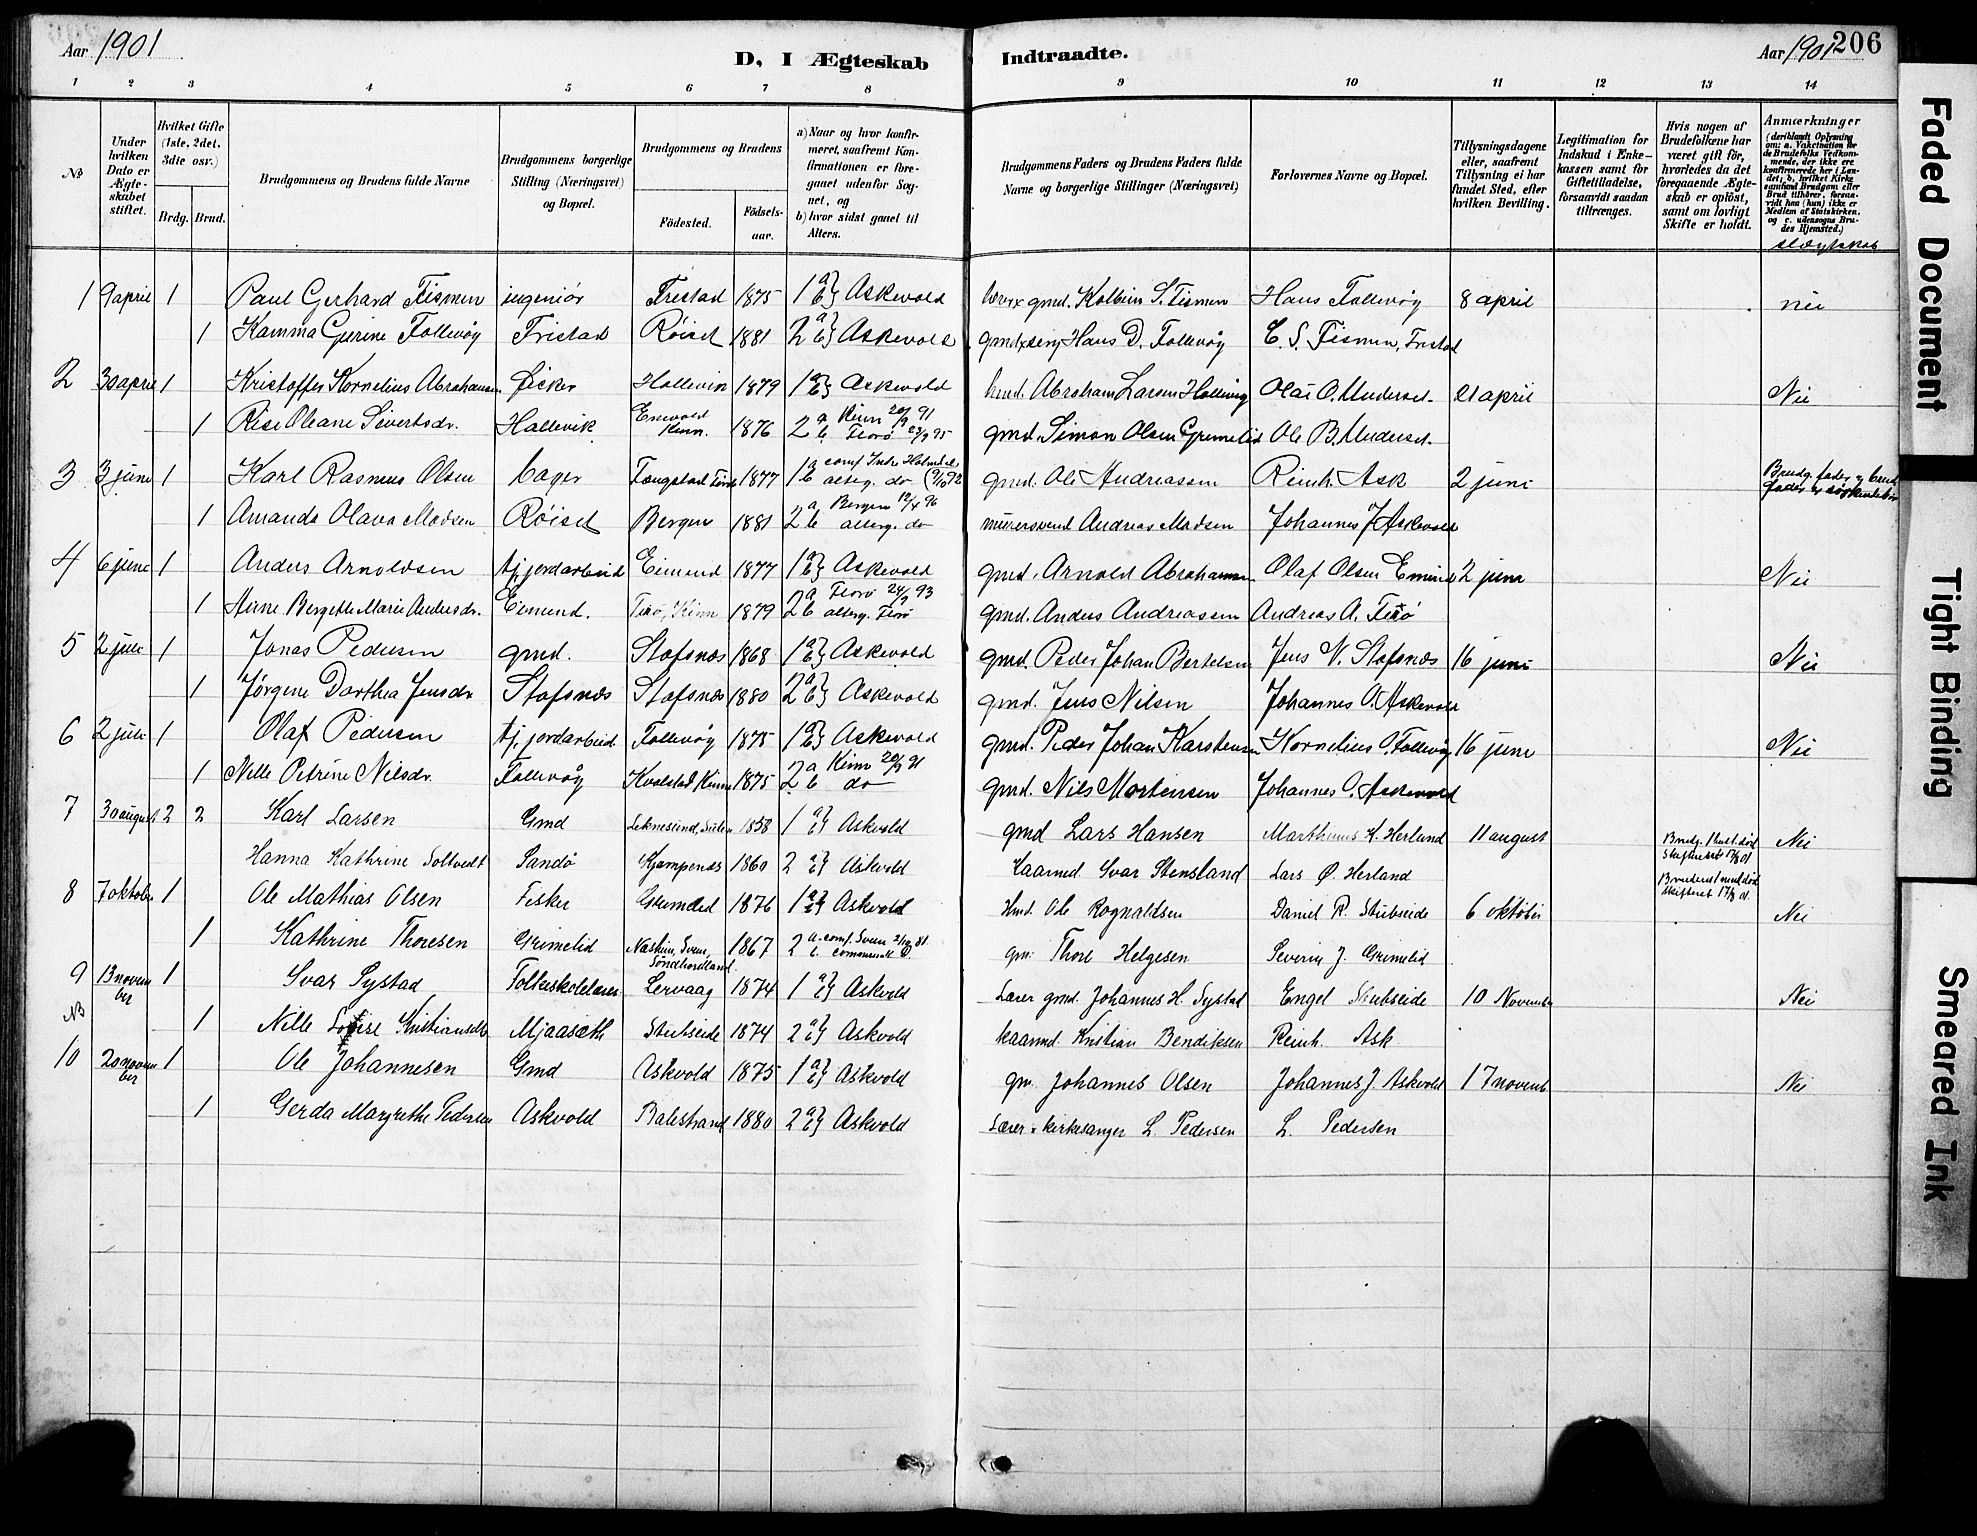 Aar 1901
D, I Ægteskab
Indtraadte.
Aar 1901
206
1 2 3 4 5 6 7 8 9 10 11 12 13 14
№
Under hvilken Dato er Ægteskabet stiftet.
Hvilket Gifte (1ste, 2det, 3die osv.)
Brdg. Brud.
Brudgommens og Brudens fulde Navne
Brudgommens borgerlige Stilling (Næringsvei) og Bopæl.
Brudgommens og Brudens
Fødested.
Fødselsaar.
a) Naar og hvor konfirmeret, saafremt Konfirmationen er foregaaet udenfor Sognet, og
b) hvor sidst gaaet til Alters.
Brudgommens Faders og Brudens Faders fulde Navne og borgerlige Stillinger (Næringsvei)
Forlovernes Navne og Bopæl.
Tillysningsdagene eller, saafremt Tillysning ei har fundet Sted, efter hvilken Bevilling.
Legitimation for Indskud i Enkekassen samt for Giftetilladelse, forsaavidt saadan tiltrænges.
Hvis nogen af Brudefolkene har været gift før, hvorledes da det foregaaende Ægteskab er opløst, samt om lovligt Skifte er holdt.
Anmærkninger (deriblandt Oplysning om: a. Vakcination for de Brudefolks Vedkommende, der ikke ere konfirmerede her i Landet; b, hvilket Kirkesamfund Brudgom eller Brud tilhører, forsaavidt han (hun) ikke er Medlem af Statskirken, og c. udensogns Brudes Hjemsted.)
slægtskab
1 9 april 1 Paul Gerhard Tismen ingeniør Fristad 1875 1 a b} Askevold gmd. Kolbein S. Tismen Hans Follevøg 8 april nei
1 Kamma Gurine Follevøg Fristad Røiset 1881 2 a b} Askevold Hans D. Follevøg Fristad
2 30 april 1 Kristoffer Kornelius Abrahamsen fisker Hallevik 1879 1 a b} Askevold Abraham Larsen Olai O. 21 april Nei
1 Oleane Sivertsdr. Hallevik Kinn. 1876 2 a Kinn 20/9 91 b Florø gmd. Simon Olsen Grimelid Ole B.
3 3 juni 1 Karl Rasmus Olsen bager 1877 1 a b alterg. do gmd. Ole Andreassen Reinh. Ask 2 juni Brudg. fader og bruds fader er
1 Amanda Olava Madsen Røiset Bergen 1881 2 a Bergen 12/4 96 b alterg. do murersvend Andreas Madsen Johannes J. Askevold
4 6 juni 1 Anders Arnoldsen tj, jordarbeid Eimund 1877 1 a b} Askevold gmd. Arnold Abrahamsen Olaf Olsen 2 juni Nei
1 Bergethe Marie Andersdr. Eimund. Kinn 1879 2 a Florø 24/9 93 b alterg. Florø gmd. Anders Andreassen Andreas A.
5 2 juli 1 Jonas Pedersen gmd. Stafsnæs 1868 1 a b} Askevold gmd. Peder Johan Bertelsen Jens N. Stafsnæs 16 juni Nei
1 Jørgene Dorthea Jensdr Stafsnæs Stafsnæs 1880 2 a b} Askevold gmd. Jens Nilsen Johannes O. Askevold
6 2 juli 1 Olaf Pedersen tj, jordarbeid Follevøg 1875 1 a b} Askevold gmd. Peder Johan Karstensen Kornelius O. Follevøg 16 juni Nei
1 Nille Petrine Nilsdr. Follevøg Kvalstad Kinn 1875 2 a Kinn 20/9 91 b do gmd. Nils Mortensen Johannes O. Askevold
7 30 august 2 2 Karl Larsen Gmd 1858 1 a b} Askvold gmd Lars Hansen Marthinus A. Herland 11 august Nei
Hanna Kathrine Soltvedt Sandø Kjempenæs 1860 2 a b} Askvold Kaarmd. Ivar Stensland Lars Ø. Herland
8 7 oktober 1 Ole Mathias Olsen Fisker Grimelid 1876 1 a b} Askvold Hmd. Ole Rognaldsen Daniel R. Stubseide 6 oktober Nei
1 Kathrine Thoresen Grimelid Søndhordland. 1867 2 gm. Thore Helgesen Severin J. Grimelid
9 13 november 1 Ivar Systad Folkeskolelærer Lervaag 1874 1 a b} Askvold Lærer gmd. Johannes H. Systad Engel Stubseide 10 November Nei
NB
1 Nille Lovise Kristiansdtr Mjaasæth Stubseide 1874 2 a b} Askvold kaarmd. Kristian Bendiksen Reinh. Ask
10 20 november 1 Ole Johannesen Gmd Askvold 1875 1 a b} Askvold gm. Johannes Olsen Johannes J. Askvold 17 novemb Nei
1 Gerda Margrethe Pedersen Askvold Balestrand 1880 2 a b} Askvold Lærer & kirkesanger L. Pedersen L. Pedersen
Faded Document
Tight Binding
Smeared Ink